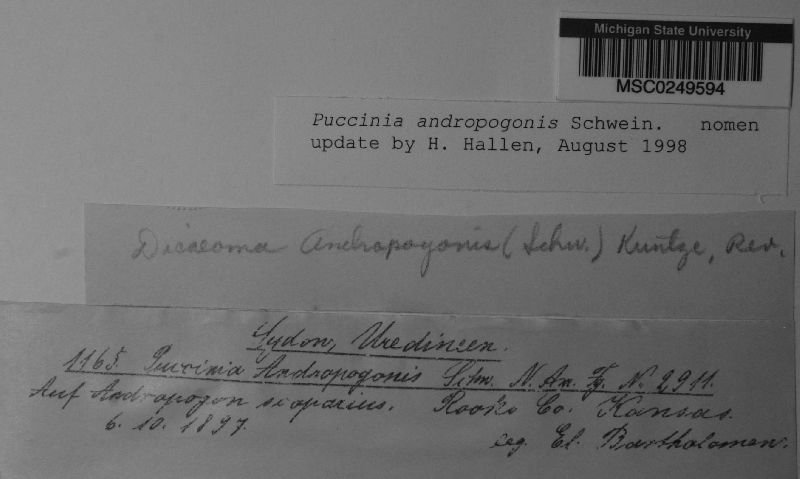 Michigan State University
MSC0249594
Puccinia andropogonis Schwein. nomen
update by H. Hallen, August 1998
Dicaeoma Andropogonis (Schw.) Kuntze, Rev.
Sydow, Uredineen.
1165. Puccinia Andropogonis Schw. N. Am. Fg. No. 2911.
Auf Andropogon scoparius. Rooks Co. Kansas.
6. 10. 1897.
leg. El. Bartholomew.